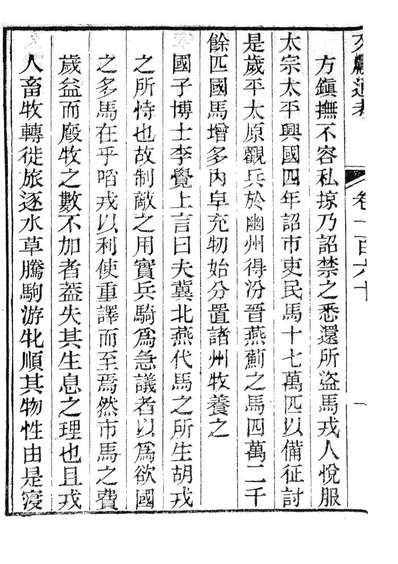 文獻通考
卷一百六十
一
方鎭撫不容私掠乃詔禁之悉還所盜馬戎人悅服
太宗太平興國四年詔市吏民馬十七萬匹以備征討
是歲平太原觀兵於幽州得汾晉燕薊之馬四萬二千
餘匹國馬增多内皁充牣始分置諸州牧養之
國子博士李覺上言曰夫冀北燕代馬之所生胡戎
之所恃也故制敵之用實兵騎爲急議者以爲欲國
之多馬在乎啗戎以利使重譯而至焉然市馬之費
歲益而廄牧之數不加者蓋失其生息之理也且戎
人畜牧轉徙旅逐水草騰駒游牝順其物性由是寖